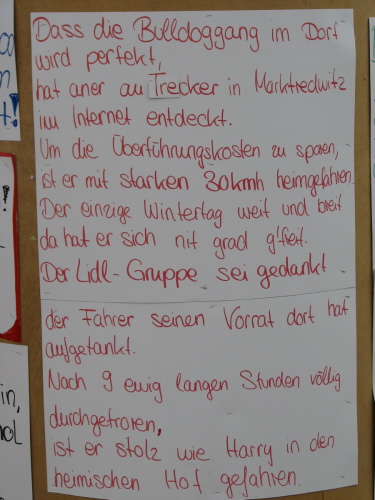 Dass die Bulldoggang im Dorf
wird perfekt,
hat aner au Trecker in Marktredwitz
im Internet entdeckt.
Um die Überführungskosten zu sparen,
ist er mit starken 30kmh heimgefahren.
Der einzige Wintertag weit und breit
da hat er sich nit grad g'freit.
Der Lidl-Gruppe sei gedankt
der Fahrer seinen Vorrat dort hat
aufgetankt.
Nach 9 ewig langen Stunden völlig
durchgefroren,
ist er stolz wie Harry in den
heimischen Hof gefahren.